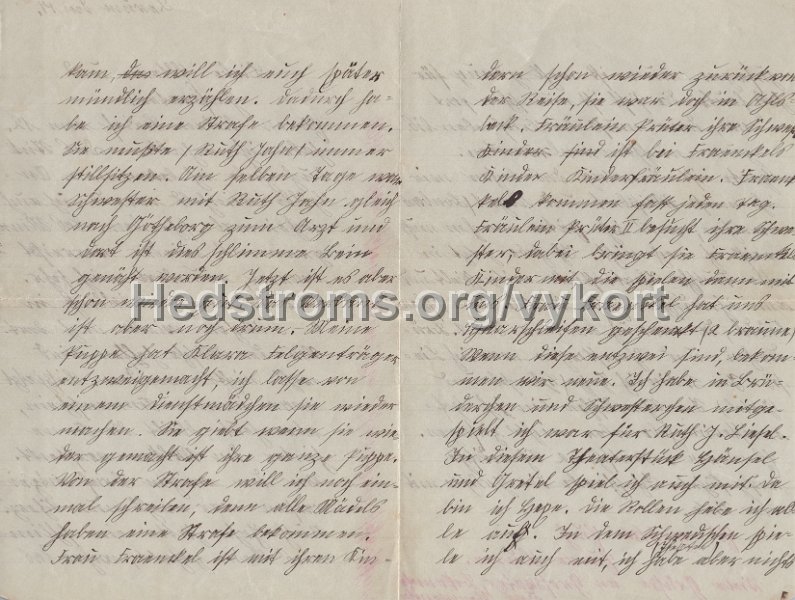 kam, das will ich euch später
mündlich erzählen. Dadurch ha-
be ich eine Strafe bekommen.
Sie mußte (Ruth Jahn) immer
stillsitzen. Am selben Tage war
Schwester mit Ruth Jahn gleich
nach Götheborg zum Arzt und
dort ist das schlimme Bein
genäht worden. Jetzt ist es aber
schon
ist aber noch krum. Meine
Puppe hat Klara Felgenträger
entzweigemacht, ich lasse von
einem Dienstmädchen sie wieder
machen. Sie giebt wenn sie wie-
der gemacht ist ihre ganze Puppe.
Von der Strafe will ich noch ein-
mal schreiben, denn alle Mädels
haben eine Strafe bekommen.
Frau Fraenkel ist mit ihren Kin-
dern schon wieder zurück von
der Reise, sie war doch in Ahls-
beck. Fräulein Prüter ihre Schwes
Kinder find ist bei Fraenkels
Kinder Kinderfräulein. Fraen
kels kommen fast jeden Tag.
Fräulein Prüter II besucht ihre Schwe
ster, dabei bringt sie Fraenkels
Kinder mit die spielen dann mit
hat uns
Haarschleifen geschenkt (2 braune)
Wenn diese entzwei sind, bekom-
men wir neue. Ich habe in Brü-
derchen und Schwesterchen mitge-
spielt ich war für Ruth J. Liesel.
In diesem Theaterstück Hänsel
und Gretel spiel ich auch mit. Da
bin ich Hexe. Die Rollen habe ich al
le auf. In dem Schwedischen spie-
le ich auch mit, ich habe aber nichts
Hedstroms.org/vykort